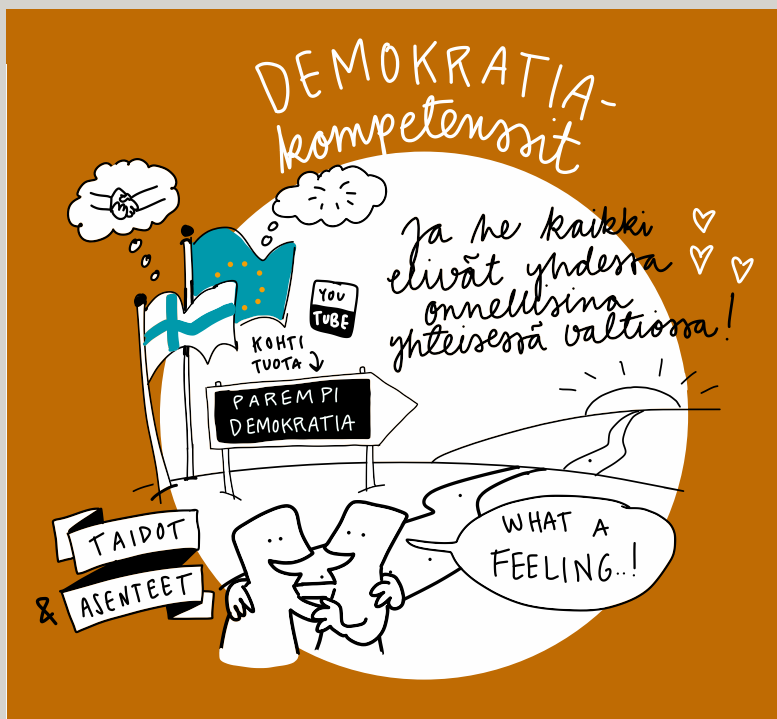 DEMOKRATIA-
kompetenssit
Ja he kaikki
elivät yhdessä
onnellisina
yhteisessä valtiossa!
YOU
TUBE
KOHTI
TUOTA
PAREMPI
DEMOKRATIA
TAIDOT
& ASENTEET
WHAT A
FEELING..!